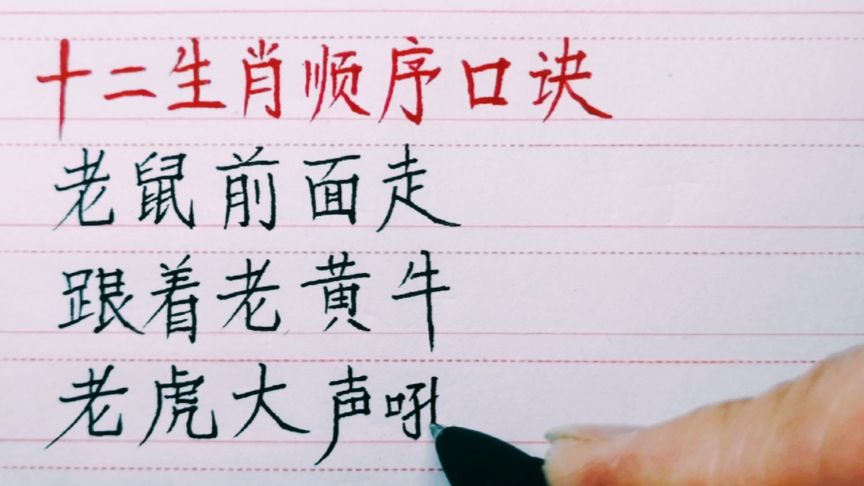 十二生肖顺序口诀
老鼠前面走
跟着老黄牛
老虎大声吼